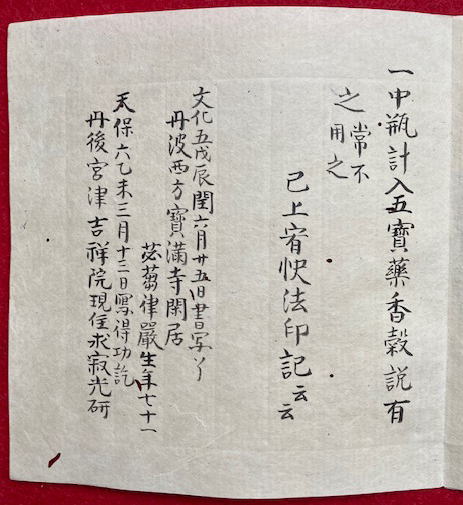 一中瓶計入五寶藥香穀説有
之常不
用之
已上宥快法印記云云
文化五戊辰閏六月廿五日書写了
丹波西方寶満寺閑居
苾蒭律嚴生年七十一
天保六乙未三月十三日寫得功訖
丹後宮津吉祥院現住求寂光研